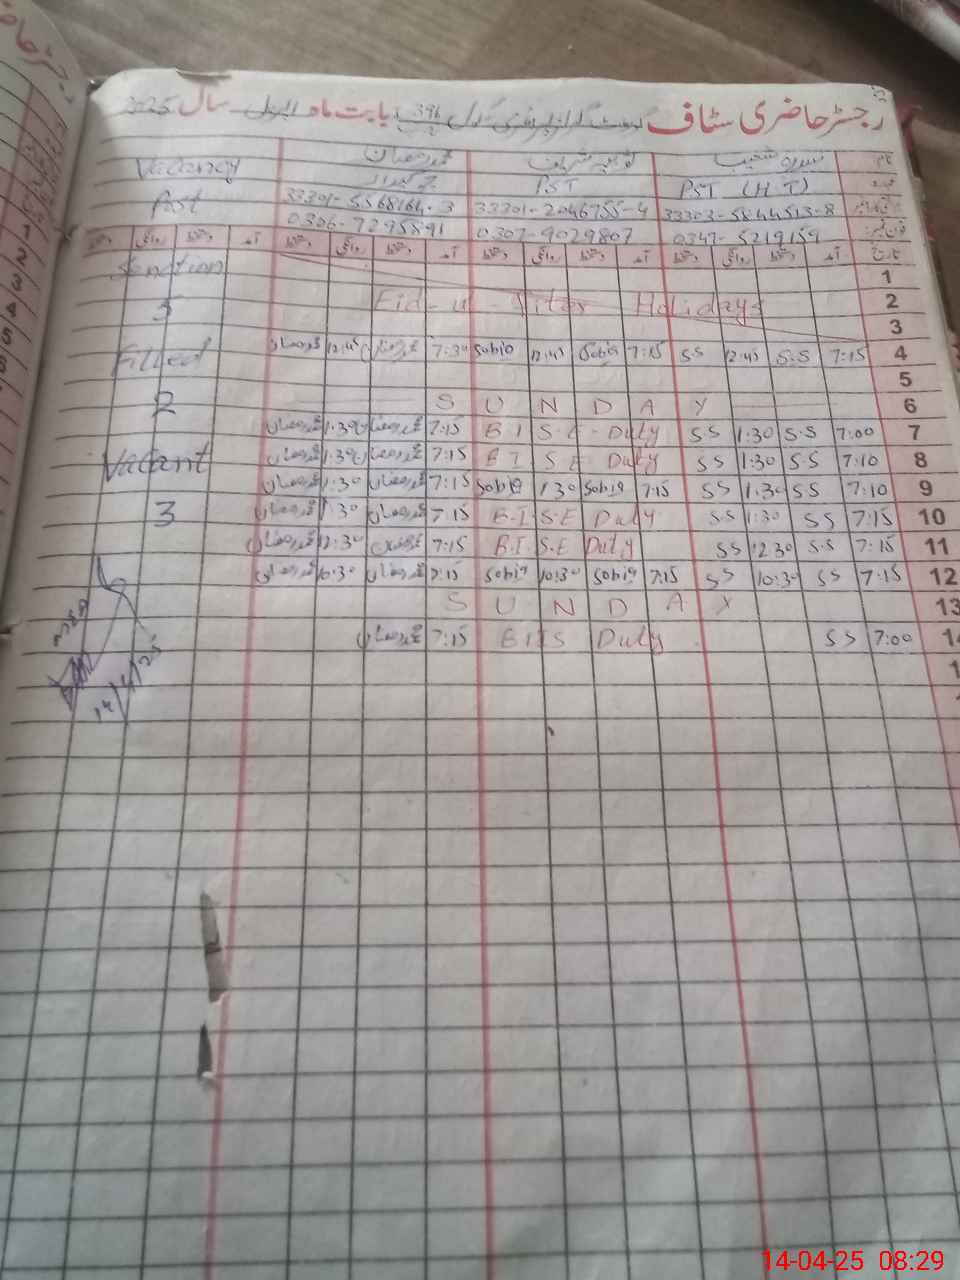 رجسٹر حاضری سٹاف گورنمنٹ گرلز پرائمری سکول 396 بابت ماہ اپریل سال 2025
نام شعیب ثوبیہ شریف محمد رمضان Vacancy
عہدہ PST (H.T) PST چوکیدار
33303-5844513-8 33301-2046755-4 33301-5568164-3 Post
فون نمبر 0347-5219159 0307-9029807 0306-7295891
تاریخ آمد دستخط روانگی دستخط آمد دستخط روانگی دستخط آمد دستخط روانگی دستخط آمد دستخط روانگی دستخط
1 Senction
2 Eid-u-Fiter Holidays 5
3
4 7:15 S.S 12:45 SS 7:15 Sobia 12:45 Sobia 7:30 محمد رمضان 12:45 محمد رمضان Filled
5
6 SUNDAY 2
7 7:00 S.S 1:30 SS B.I.S.E-Duty 7:15 محمد رمضان 1:30 محمد رمضان
8 7:10 S.S 1:30 SS B I S E Duty 7:15 محمد رمضان 1:30 محمد رمضان Vacant
9 7:10 SS 1:30 SS 7:15 Sobia 1:30 Sobia 7:15 محمد رمضان 1:30 محمد رمضان
10 7:15 SS 1:30 S.S B.I.S.E Duty 7:15 محمد رمضان 1:30 محمد رمضان 3
11 7:15 S.S 12:30 SS B.I.S.E Duty 7:15 محمد رمضان 12:30 محمد رمضان
12 7:15 SS 10:30 SS 7:15 Sobia 10:30 Sobia 7:15 محمد رمضان 10:30 محمد رمضان
13 SUNDAY
14 7:00 SS BIIS Duty 7:15 محمد رمضان
14/4/25
14-04-25 08:29